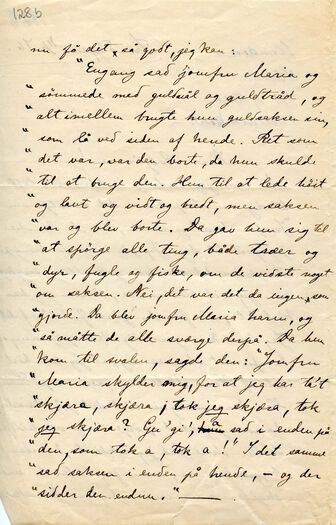 128b
nu få det så godt, jeg kan:
"Engang sad jomfru Maria og
"sömmede med guldnål og guldtråd, og
"alt imellem brugte hun guldsaksen sin,
"som lå ved siden af hende. Ret som
"det var, var den borte, da hun skulde
"til at bruge den. Hun til at lede höit
"og lavt og vidt og bredt, men saksen
"var og blev borte. Da gav hun sig til
"at spörge alle ting, både træer og
"dyr, fugle og fiske, om de vidste noget
"om saksen. Nei, det var det da ingen, som
"gjorde. Da blev jomfru Maria harm, og
"så måtte de alle sværge derpå. Da hun
"kom til svalen, sagde den: "Jomfru
"Maria skylder mig, for at jeg har te't
"skjæra, skjæra; tok jeg skjæra, tok
"jeg skjæra? Gu' gi', a sad i enden på
"den, som tok a, tok a!" I det samme
"sad saksen i enden på hende, – og der
"sidder den endnu." —